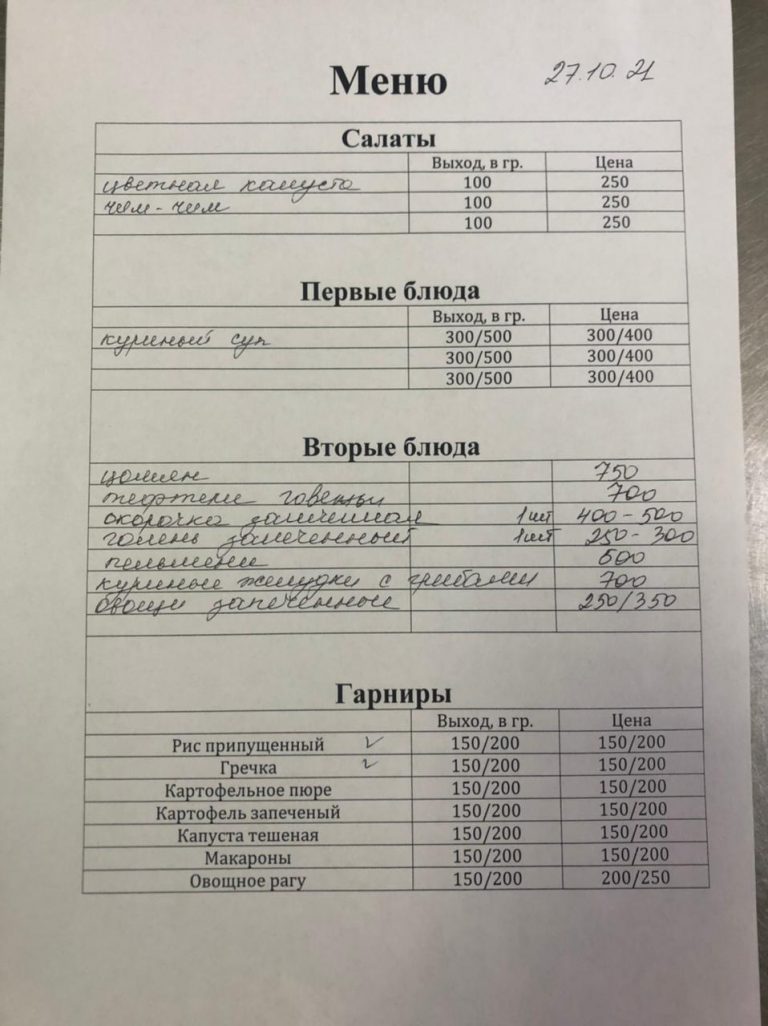 Меню 27.10.21
Салаты
Выход, в гр. Цена
цветная капуста 100 250
чим-чим 100 250
100 250
Первые блюда
Выход, в гр. Цена
куриный суп 300/500 300/400
300/500 300/400
300/500 300/400
Вторые блюда
цомян 750
тефтели говяжьи 700
окорочка запеченная 1шт 400-500
голень запеченный 1шт 250-300
пельмени 600
куриные желудки с грибами 700
овощи запеченные 250/350
Гарниры
Выход, в гр. Цена
Рис припущенный 150/200 150/200
Гречка 150/200 150/200
Картофельное пюре 150/200 150/200
Картофель запеченый 150/200 150/200
Капуста тешеная 150/200 150/200
Макароны 150/200 150/200
Овощное рагу 150/200 200/250